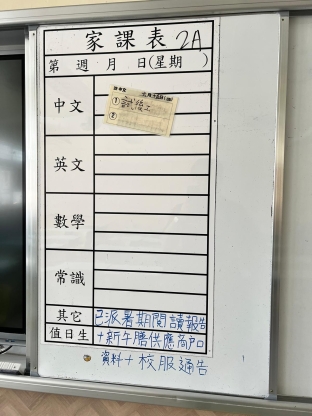 家課表 2A
第 週 月 日(星期 )
中文
① 試後工
②
英文
數學
常識
其它 已派暑期閱讀報告
值日生 +新午膳供應商戶口
資料+校服通告